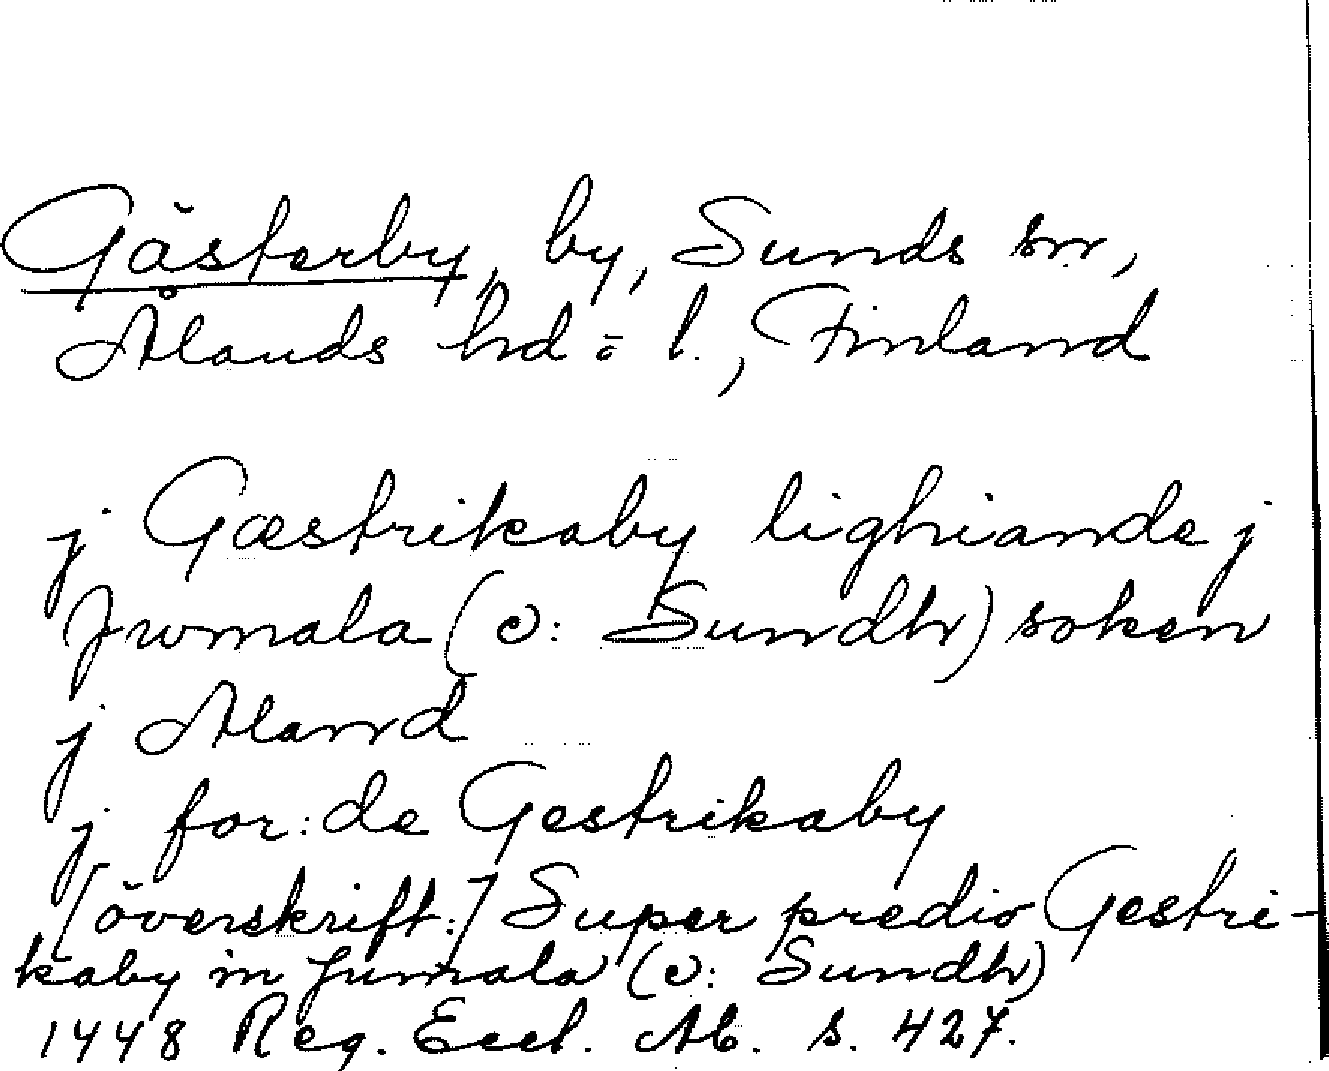 Gästerby, by, Sunds sn,
Ålands hd o l., Finland
j Gæstrikaby lighiande j
Jwmala (ɔ: Sundh) soken
j Aland
j for:de Gestrikaby
[överskrift:] Super predio Gestri-
kaby in Jumala (ɔ: Sundh)
1448 Reg. Eccl. Ab. s. 427.